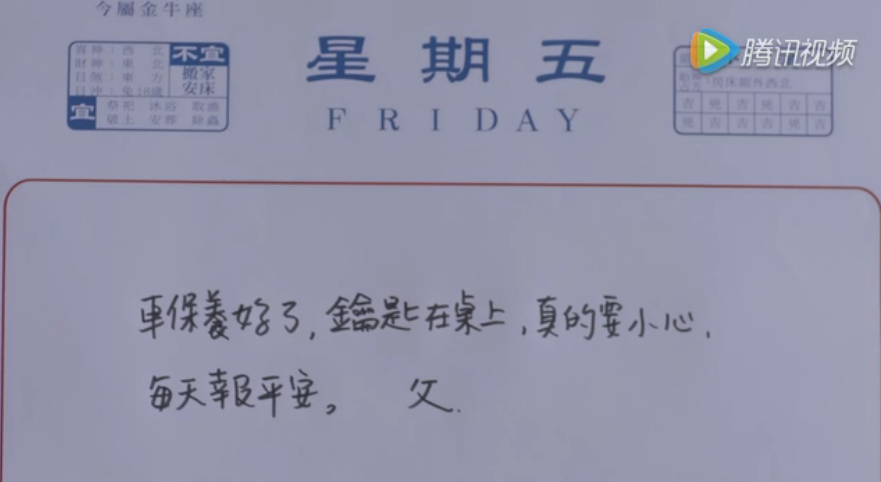 今屬金牛座
喜神：西北
財神：東北
日煞：東方
日沖：兔18歲
不宜
搬家
安床
宜
祭祀 沐浴 取漁
破土 安葬 除蟲
星期五
FRIDAY
腾讯视频
房床廁外西北
吉 兇 吉 兇 吉 吉
兇 吉 吉 吉 兇 吉
車保養好了，鑰匙在桌上，真的要小心，
每天報平安。 父.